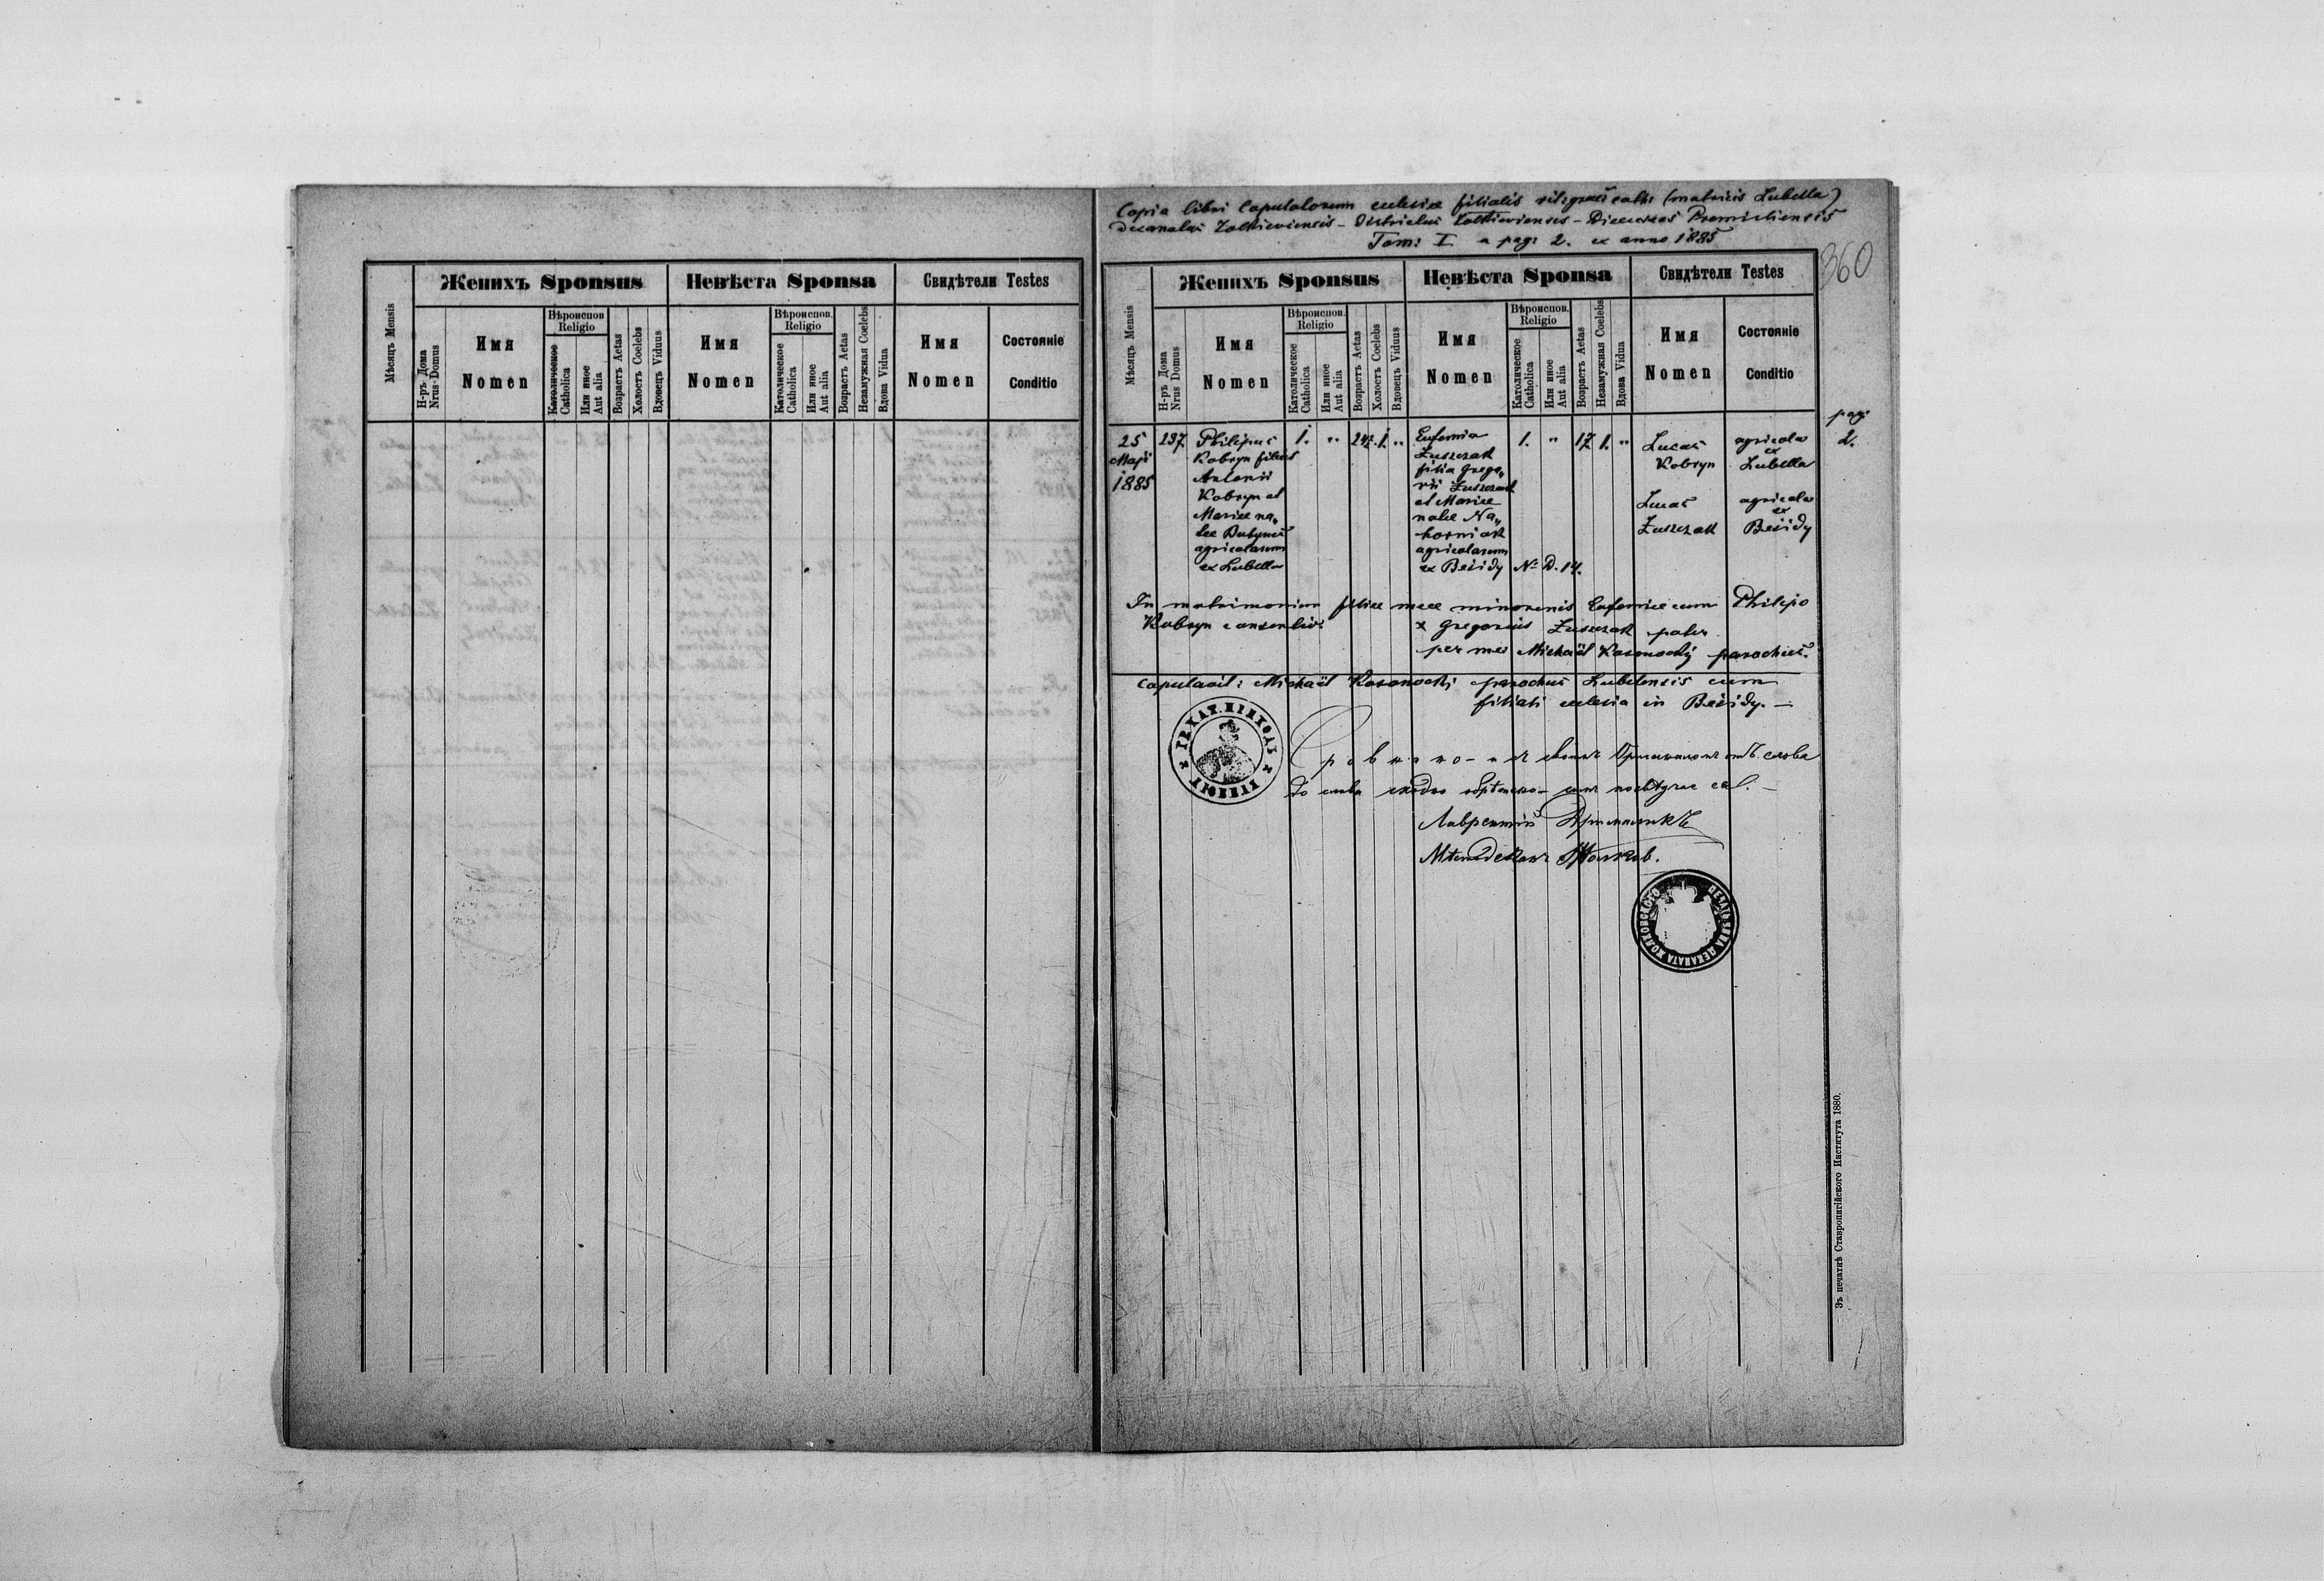 Женихъ Sponsus
Невѣста Sponsa
Свидѣтели Testes
Мѣсяцъ Mensis
Н-ръ Дома
Nrus Domus
Имя
Nomen
Вѣроиспов.
Religio
Католическое
Catholica
Или иное
Aut alia
Возрастъ Aetas
Холостъ Coelebs
Вдовецъ Viduus
Имя
Nomen
Вѣроиспов.
Religio
Католическое
Catholica
Или иное
Aut alia
Возрастъ Aetas
Незамужная Coelebs
Вдова Vidua
Имя
Nomen
Состояніе
Conditio
Copia libri Copulatorum ecclesiae filialis cath: (matricis Lubella)
Decanatus Zolkieviensis - Districtus Zolkieviensis - Premisliensis
Tom: I a pag: 2. ex anno 1885
360
Женихъ Sponsus
Невѣста Sponsa
Свидѣтели Testes
Мѣсяцъ Mensis
Н-ръ Дома
Nrus Domus
Имя
Nomen
Вѣроиспов.
Religio
Католическое
Catholica
Или иное
Aut alia
Возрастъ Aetas
Холостъ Coelebs
Вдовецъ Viduus
Имя
Nomen
Вѣроиспов.
Religio
Католическое
Catholica
Или иное
Aut alia
Возрастъ Aetas
Незамужная Coelebs
Вдова Vidua
Имя
Nomen
Состояніе
Conditio
pag:
2.
25
Maji
1885
137
Philipus
Kobryn filius
Antonii
Kobryn et
Mariae na„
tae
agricolarum
ex Lubella
1. „ 24. 1. „
Eufemia
Zuszczak
filia Grego„
rii Zuszczak
et Mariae
natae Na„
horniak
agricolarum
ex Besidy No D. 14.
1. „ 17 1. „
Lucas
Kobryn
agricola
ex
Lubella
Lucas
Zuszczak
agricola
ex
Besidy
In matrimonium filiae meae minorenis Eufemiae cum Philipo
Kobryn consentio:
x Gregorius Zuszczak pater
per me Michaël Kosonocky parochus.
Copulavit: Michaël Kosonocky parochus Lubelensis cum
filiali ecclesia in Besidy. —
ГР. КАТ. ПРИХОДЪ
до слова
Лаврентій
Мѣстодеканъ Жолков.
Зъ печатнѣ Ставропигійского Института 1880.